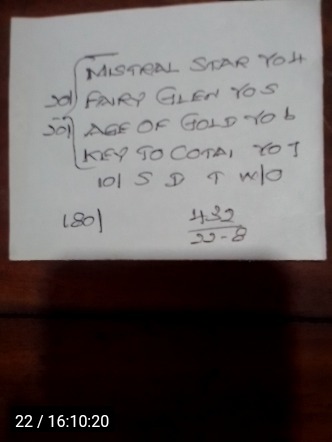 MISTRAL STAR YO4
20/ FAIRY GLEN YO5
20/ AGE OF GOLD YO6
KEY TO COTAI YO7
10/ S D T W/O
180/ 432
22-8
22 / 16:10:20